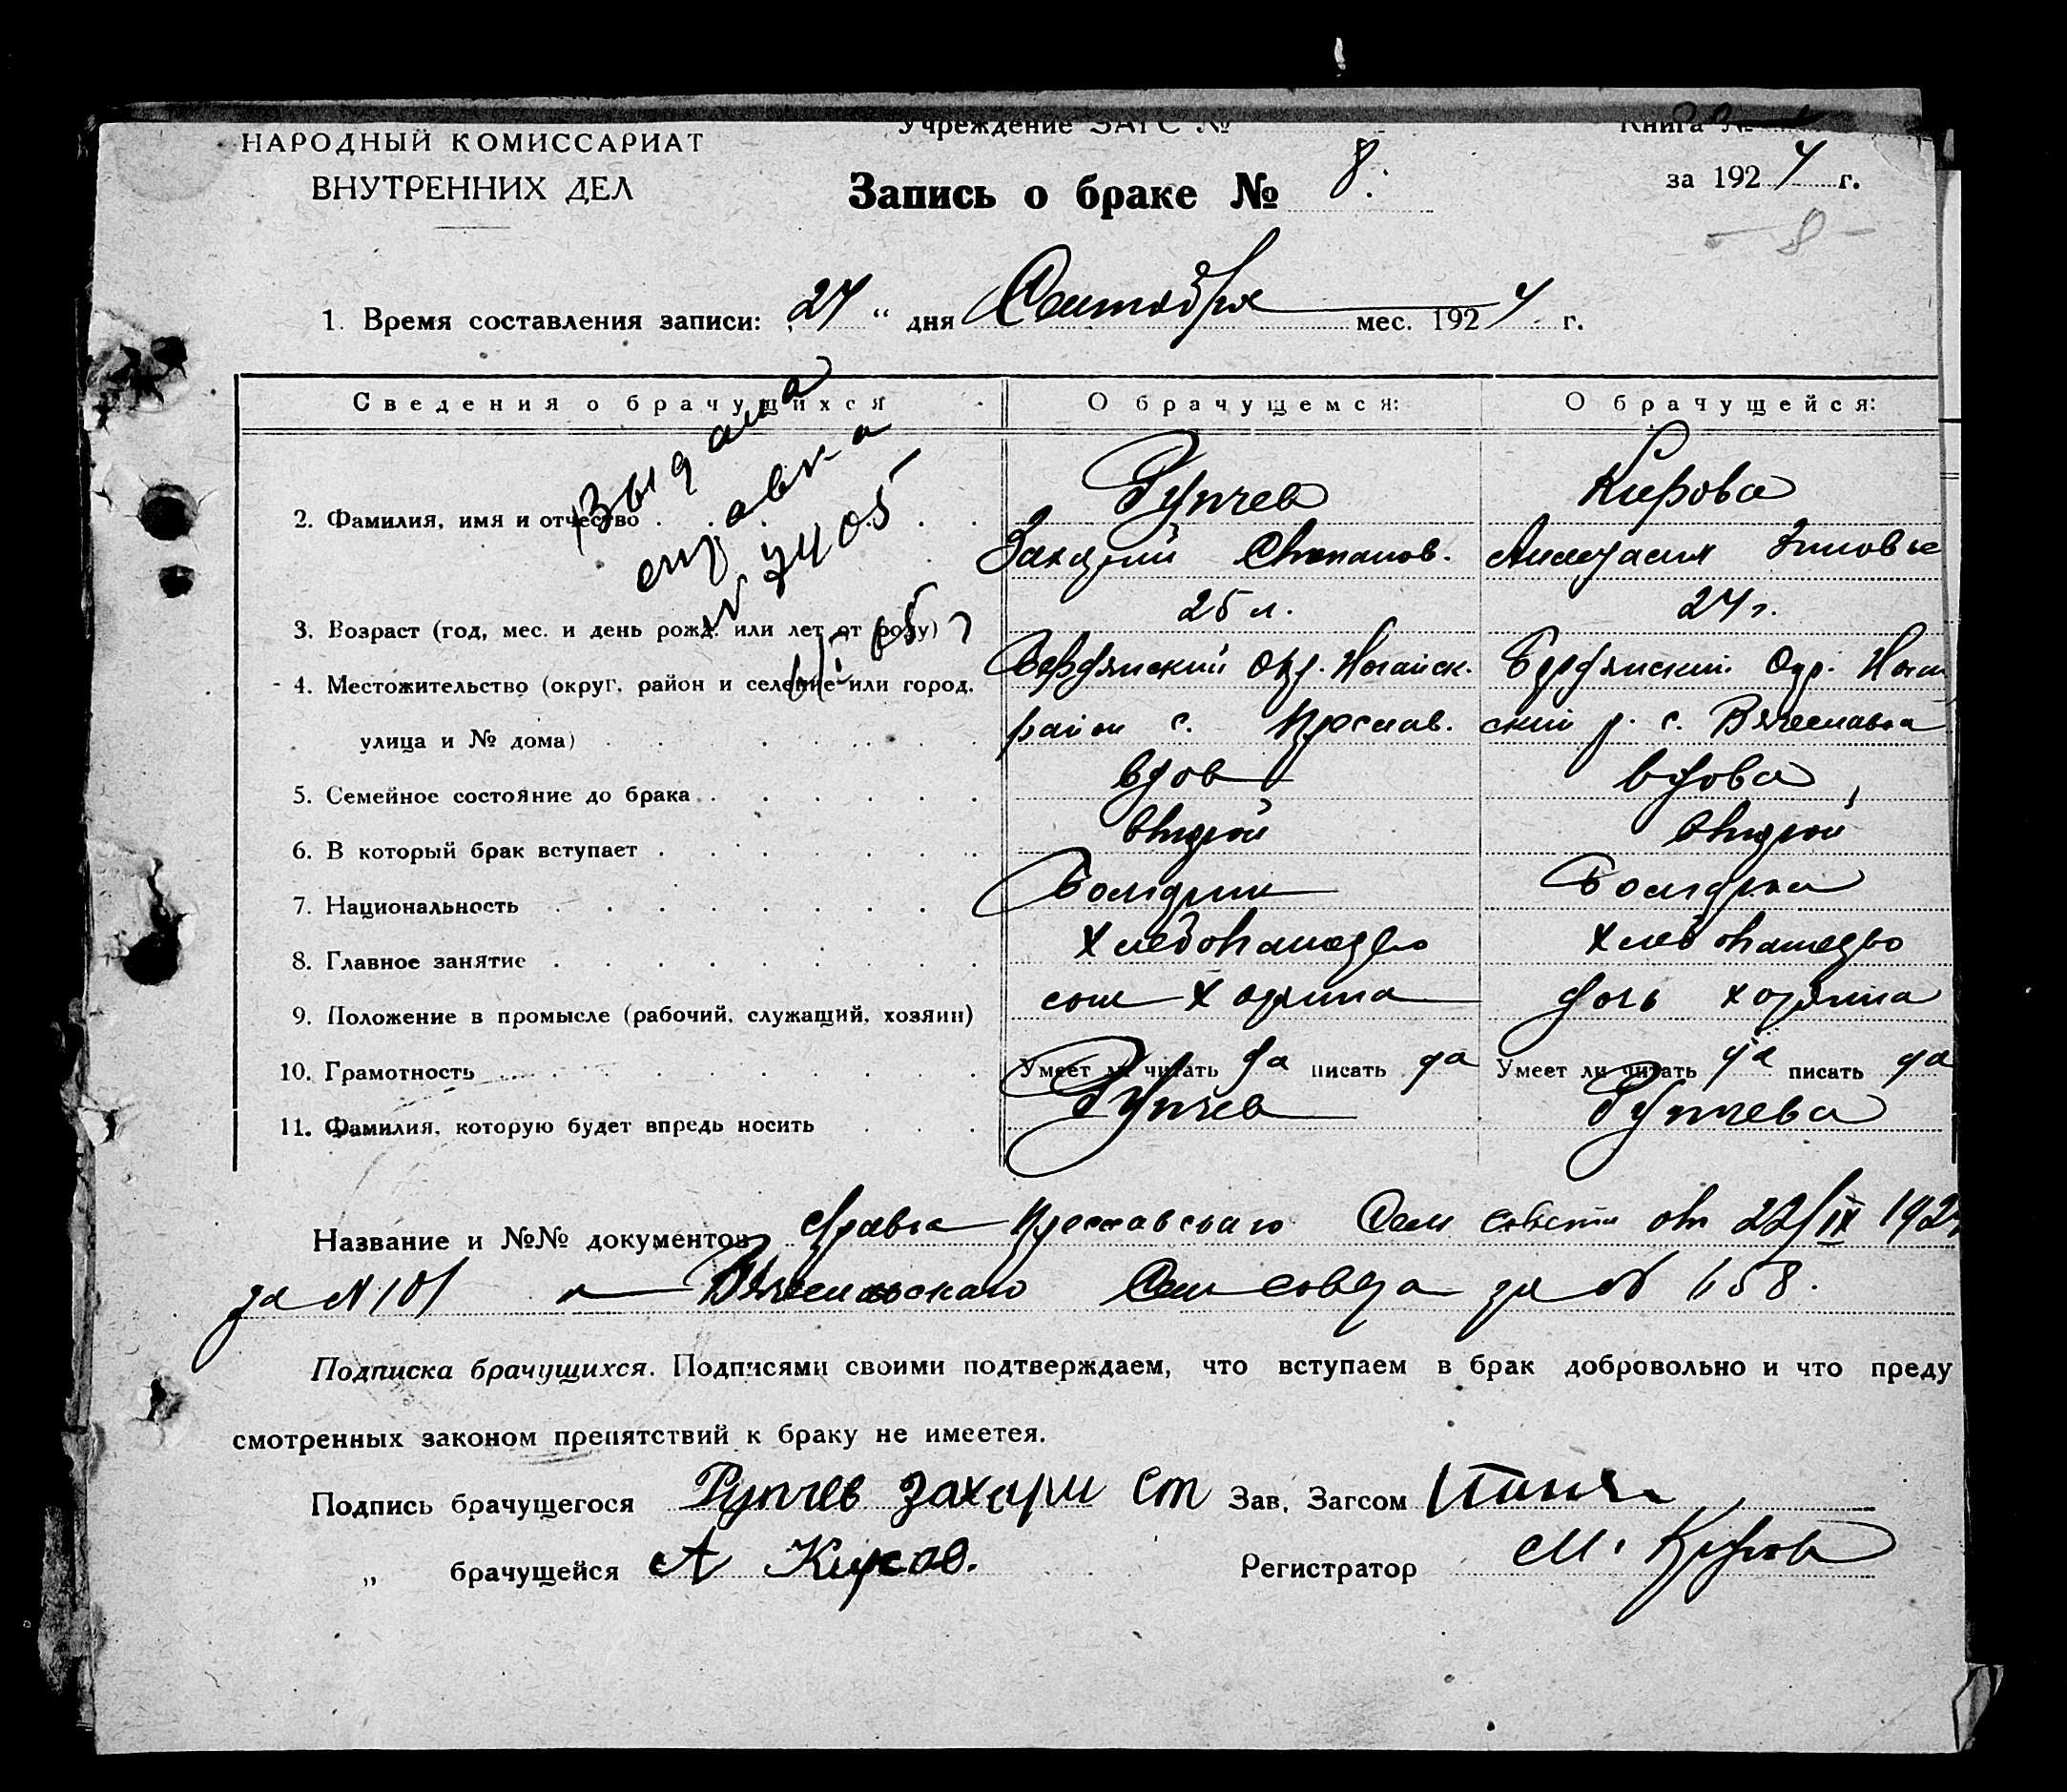 Учреждение ЗАГС №
Книга №
НАРОДНЫЙ КОМИССАРИАТ
ВНУТРЕННИХ ДЕЛ
Запись о браке № 8.
за 1924 г.
- 8 -
1. Время составления записи: 24 " дня Сентября мес. 1924 г.
Сведения о брачущихся
О брачущемся:
О брачущейся:
Выдана
справка
№ 3405
2. Фамилия, имя и отчество
Рупчев
Кирова
Захарий Степанов.
Анастасия Зиновье
3. Возраст (год, мес. и день рожд. или лет от роду)
25 л.
24 г.
4. Местожительство (округ, район и селение или город,
Бердянский Окр. Ногайск.
Бердянский Окр. Ногай
улица и № дома)
район с. Преслав.
ский р. с. Вячеславка
5. Семейное состояние до брака
вдов
вдова
6. В который брак вступает
второй
второй
7. Национальность
Болгарин
Болгарка
8. Главное занятие
хлебопашество
хлебопашество
9. Положение в промысле (рабочий, служащий, хозяин)
сын хозяина
дочь хозяина
10. Грамотность
Умеет ли читать да писать да
Умеет ли читать да писать да
11. Фамилия, которую будет впредь носить
Рупчев
Рупчева
Название и №№ документов справка Преславского Сель совета от 22/IX 192
за № 101 и Вячеславскаго Сель совета за № 658.
Подписка брачущихся. Подписями своими подтверждаем, что вступаем в брак добровольно и что преду
смотренных законом препятствий к браку не имеется.
Подпись брачущегося Рупчев Захари Ст Зав. Загсом
„ брачущейся А Киров. Регистратор М. Киров